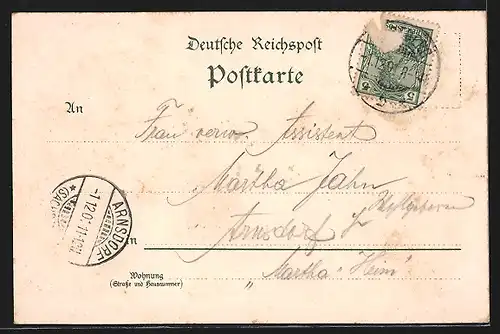 Deutsche Reichspost
Postkarte
An
Frau verw. Assistent
Martha Jahn
Arnsdorf
in
"Martha-Heim"
Wohnung
(Straße und Hausnummer)
ARNSDORF
1.12.01.11-12V.
(SACHSEN)
5 5